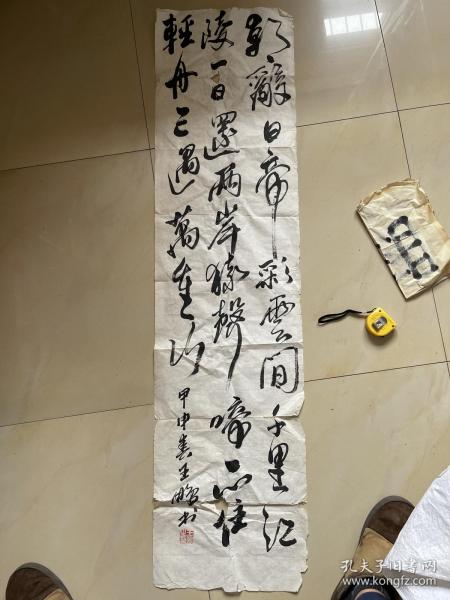 朝辭白帝彩雲間千里江
陵一日還兩岸猿聲啼不住
輕舟已過萬重山
甲申春王鵬書
孔夫子旧书网
www.kongfz.com